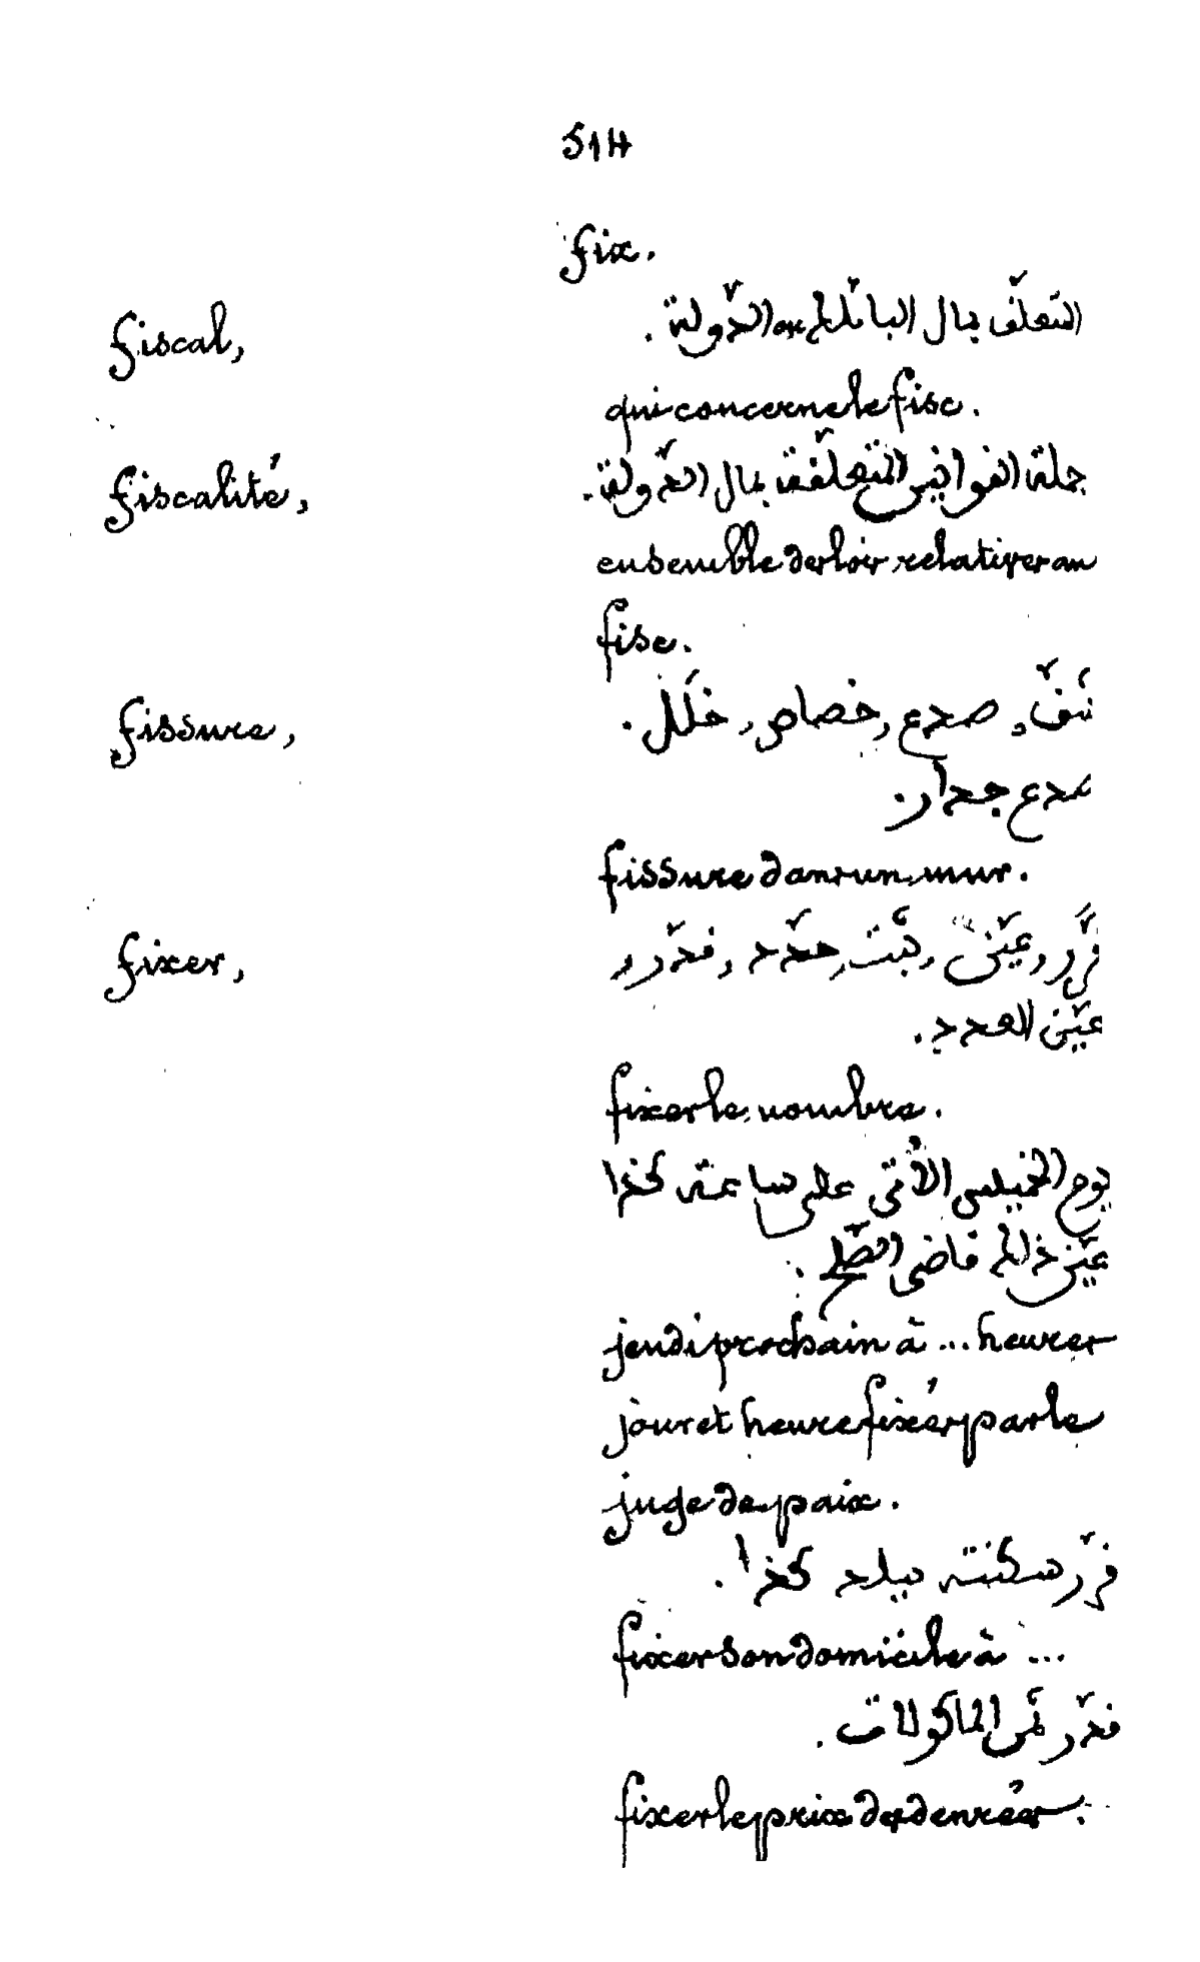 514
fix.
fiscal, المتعلّق بمال البائلك ou الدّولة.
qui concerne le fisc.
fiscalité, جملة القوانين المتعلّقة بمال الدّولة.
ensemble des lois relatives au
fisc.
fissure, شقّ, صدع, خصاص, خلَل.
صدع جدار.
fissure dans un mur.
fixer, قرّر, عيّن, ثبّت, حدّد, قدّر,
عيّن العدد.
fixer le nombre.
يوم الخميس الأتى على ساعة كذا
عيّن ذلك قاضى الصّلح.
jeudi prochain à ... heures
jour et heure fixés par le
juge de paix.
قرّر سكنته ببلد كذا.
fixer son domicile à ...
قدّر ثمن الماكولات.
fixer le prix des denrées.